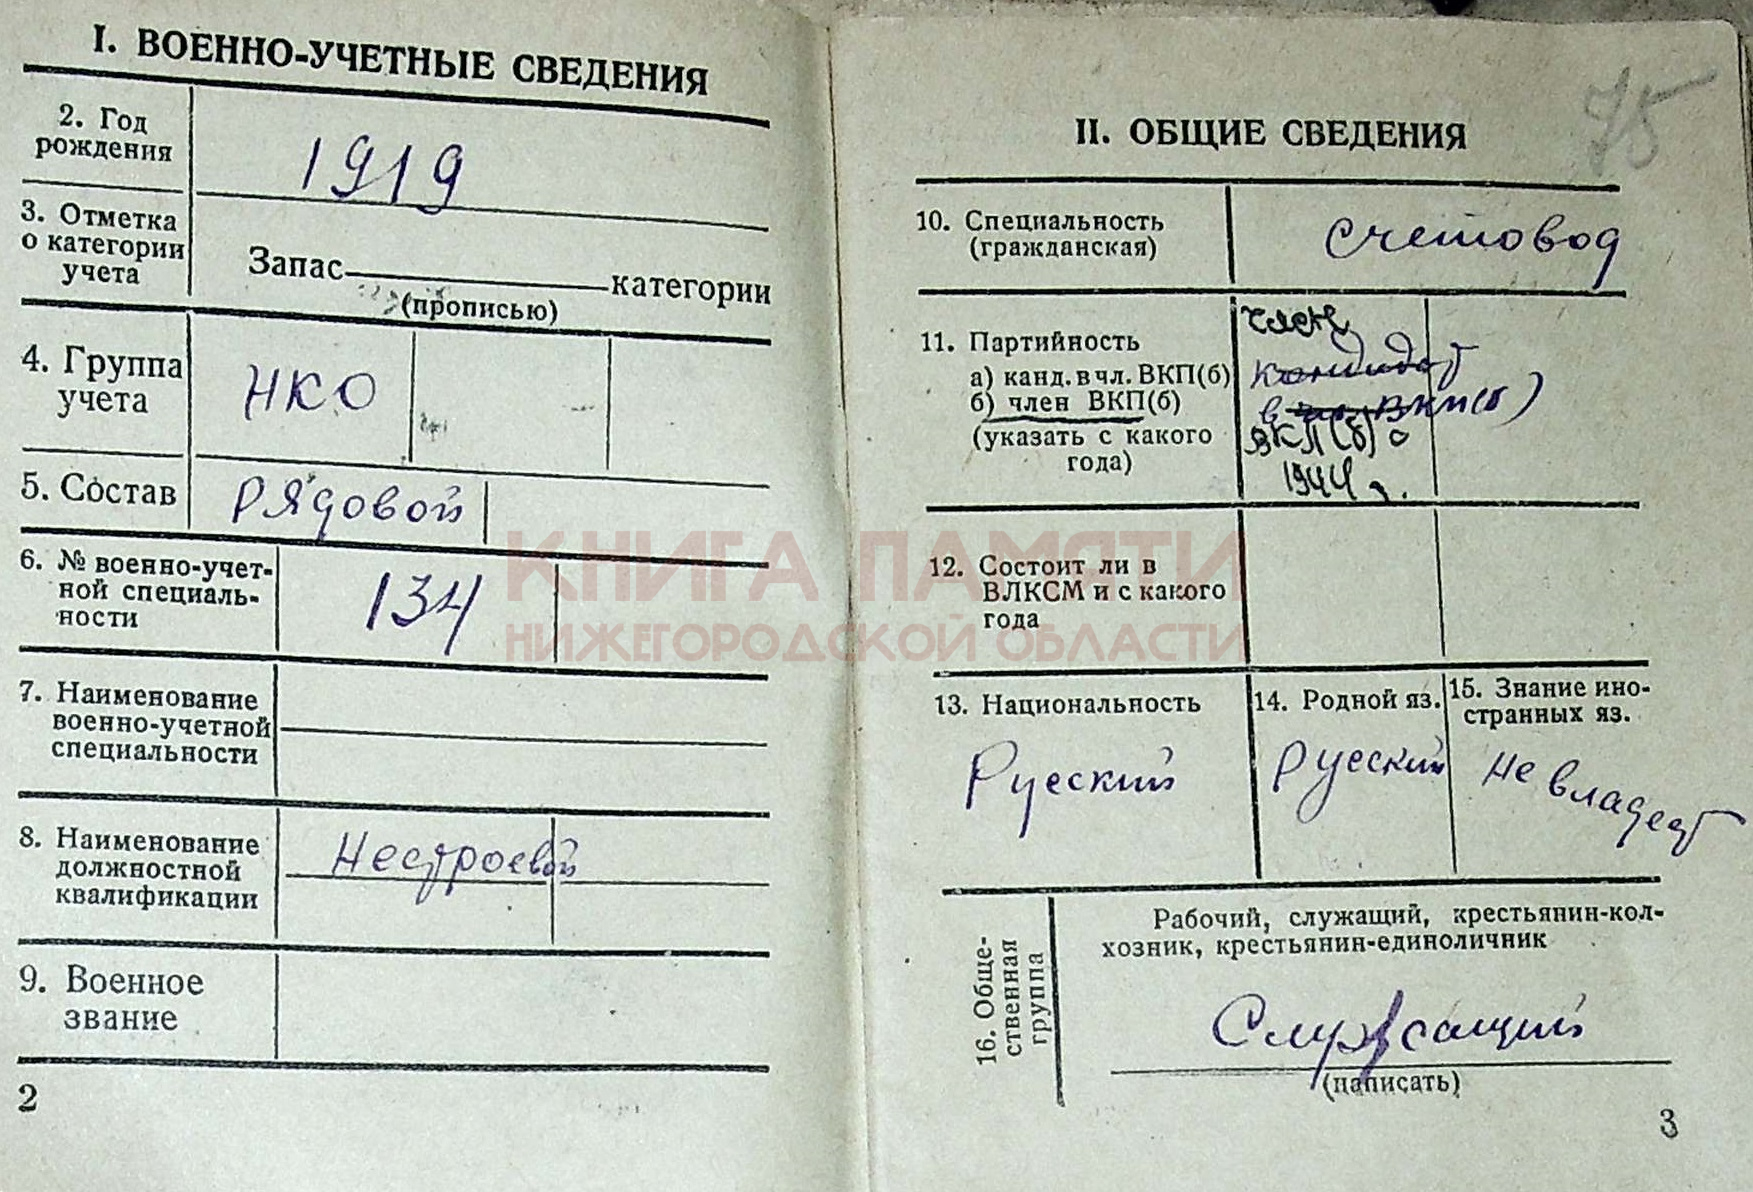 I. ВОЕННО-УЧЕТНЫЕ СВЕДЕНИЯ
2. Год
рождения
1919
3. Отметка
о категории
учета
Запас категории
(прописью)
4. Группа
учета
НКО
5. Состав
Рядовой
6. № военно-учет-
ной специаль-
ности
134
7. Наименование
военно-учетной
специальности
8. Наименование
должностной
квалификации
Нестроевой
9. Военное
звание
2
75
II. ОБЩИЕ СВЕДЕНИЯ
10. Специальность
(гражданская)
Счетовод
11. Партийность
а) канд. в чл. ВКП(б)
б) член ВКП(б)
(указать с какого
года)
член
кандидат
в чл. ВКП(б)
ВКП(б) с
1944 г.
12. Состоит ли в
ВЛКСМ и с какого
года
13. Национальность
Русский
14. Родной яз.
Русский
15. Знание ино-
странных яз.
не владеет
16. Обще-
ственная
группа
Рабочий, служащий, крестьянин-кол-
хозник, крестьянин-единоличник
Служащий
(написать)
3
КНИГА ПАМЯТИ
НИЖЕГОРОДСКОЙ ОБЛАСТИ